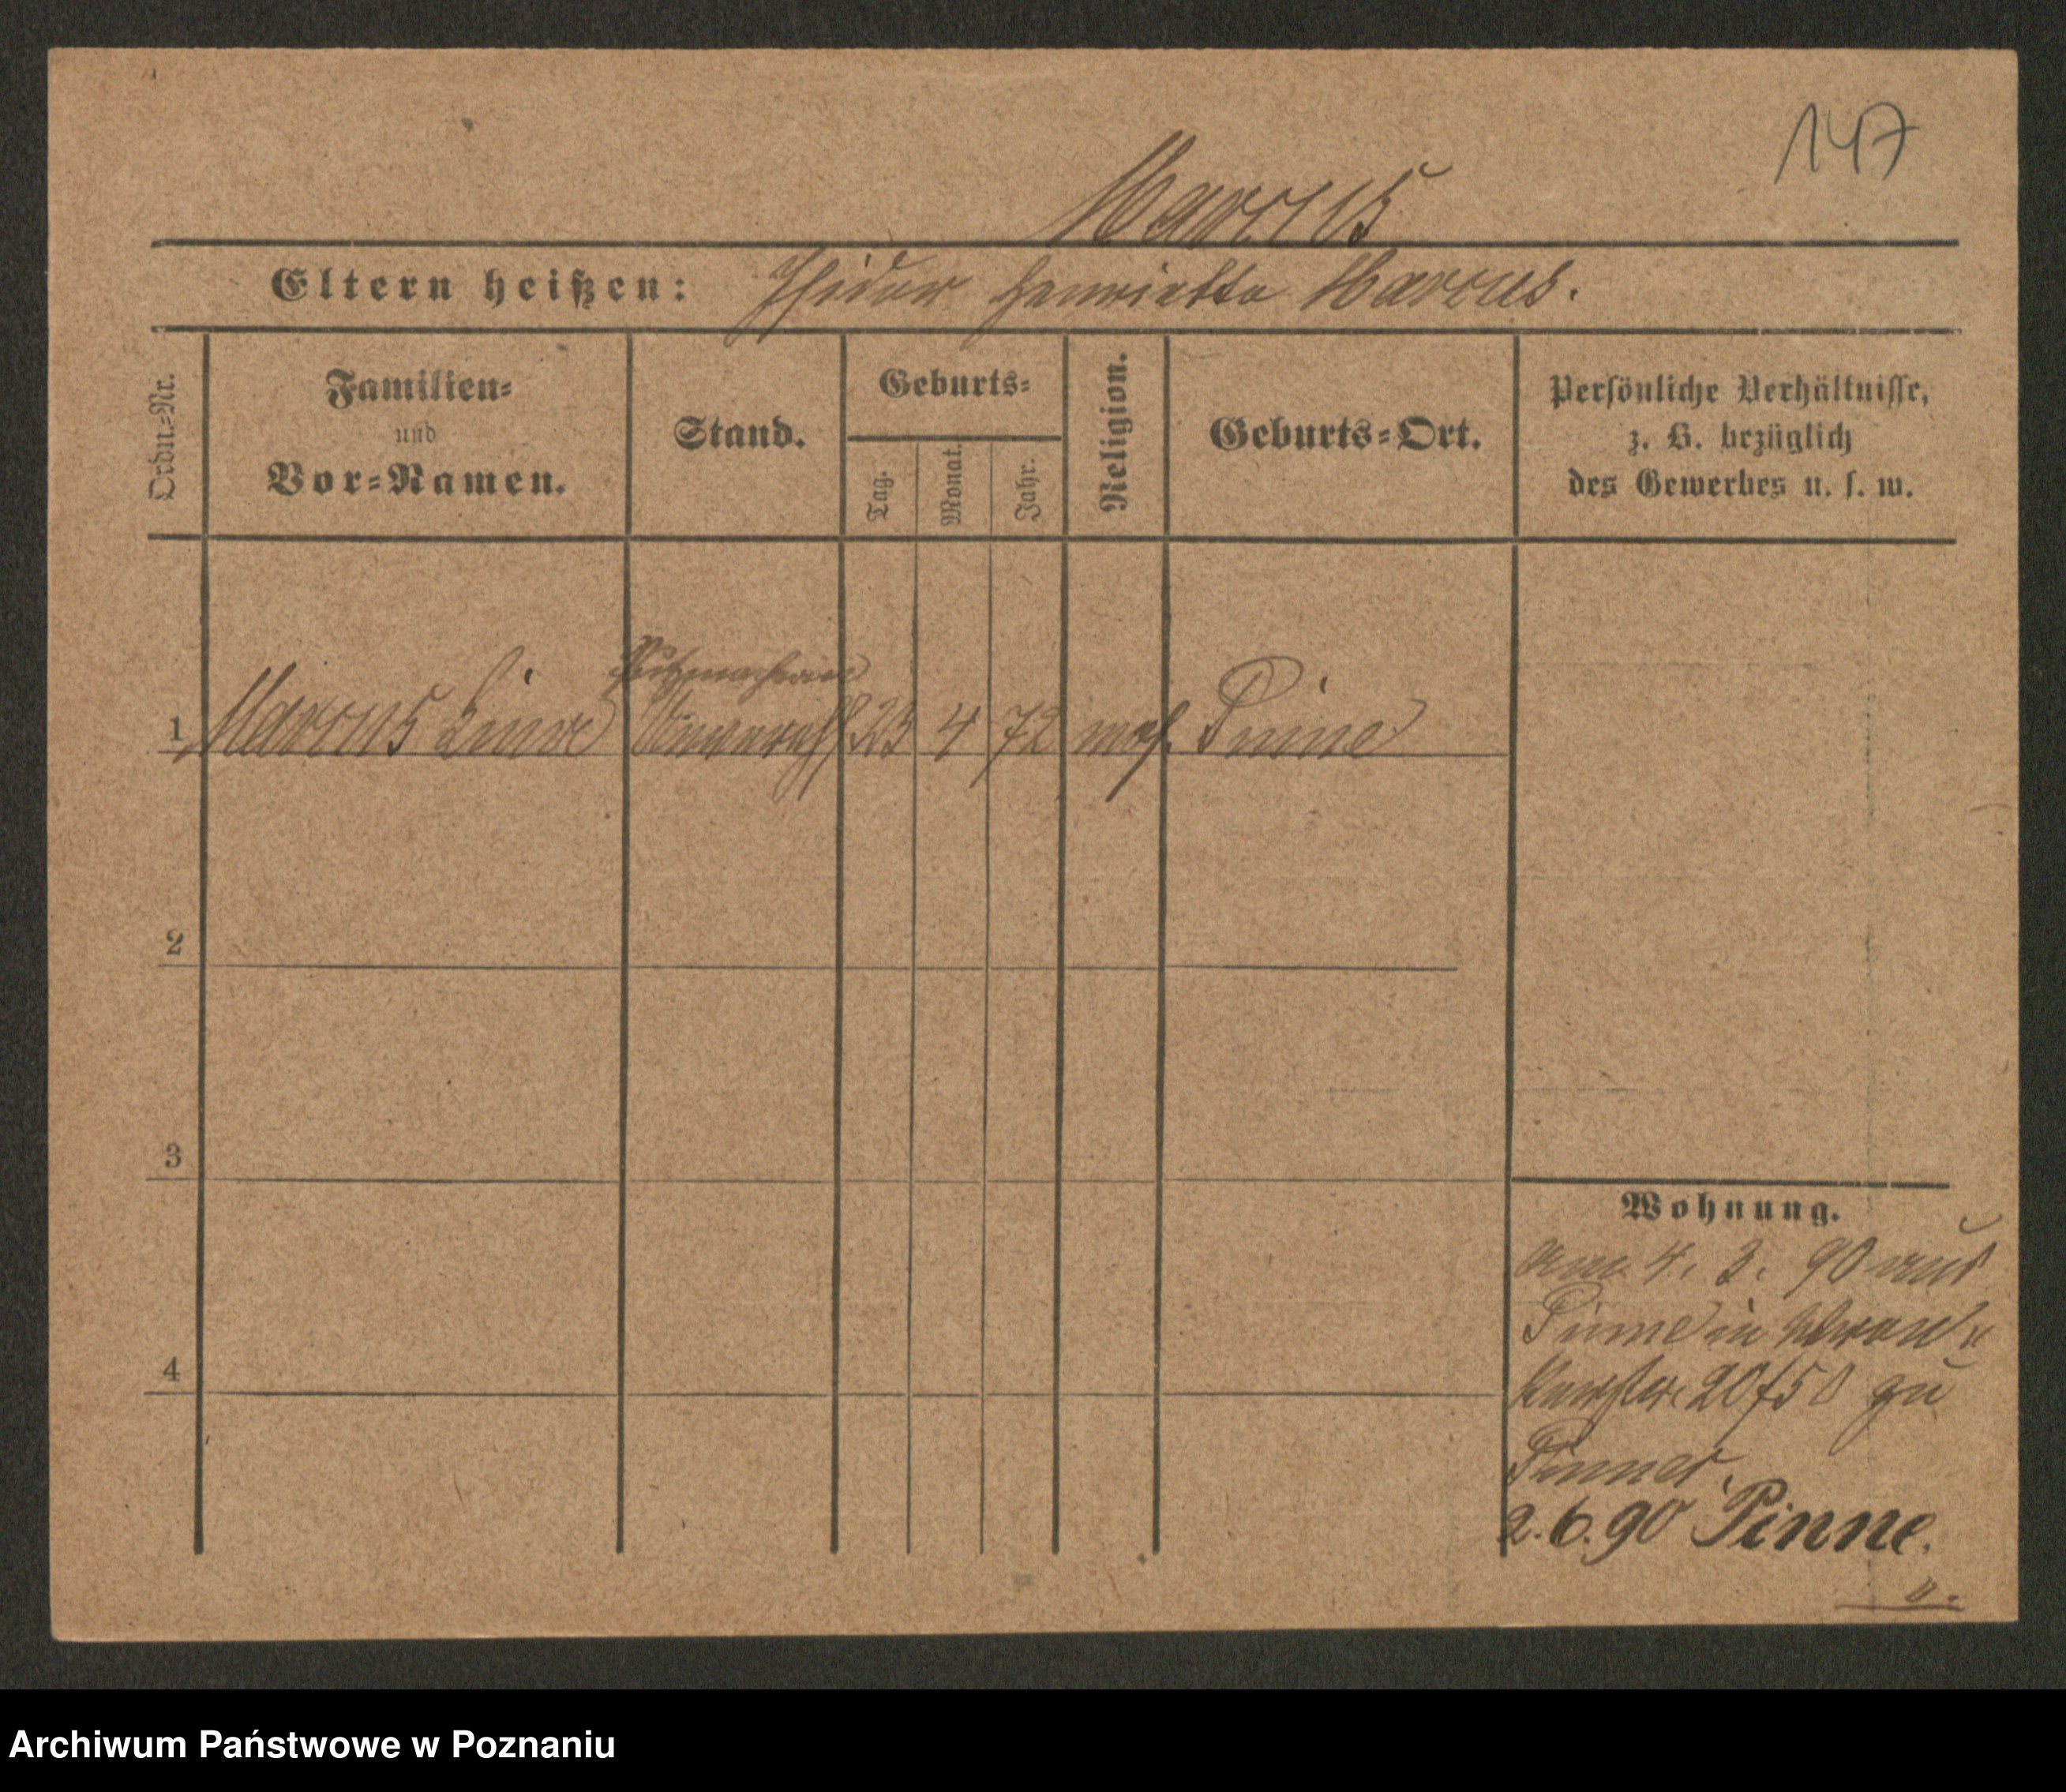 147
Marcus
Eltern heißen: Isidor Henriette Marcus.
Ordn.-Nr.
Familien-
und
Vor-Namen.
Stand.
Geburts-
Tag.
Monat.
Jahr.
Religion.
Geburts-Ort.
Persönliche Verhältnisse,
z. B. bezüglich
des Gewerbes u. s. w.
Putzmacherin
1 Marcus 23 4 72 mos. Pinne
2
3
4
Wohnung.
am 4. 3. 90 aus
Pinne in
zu
Pinner
2. 6. 90 Pinne.
Archiwum Państwowe w Poznaniu